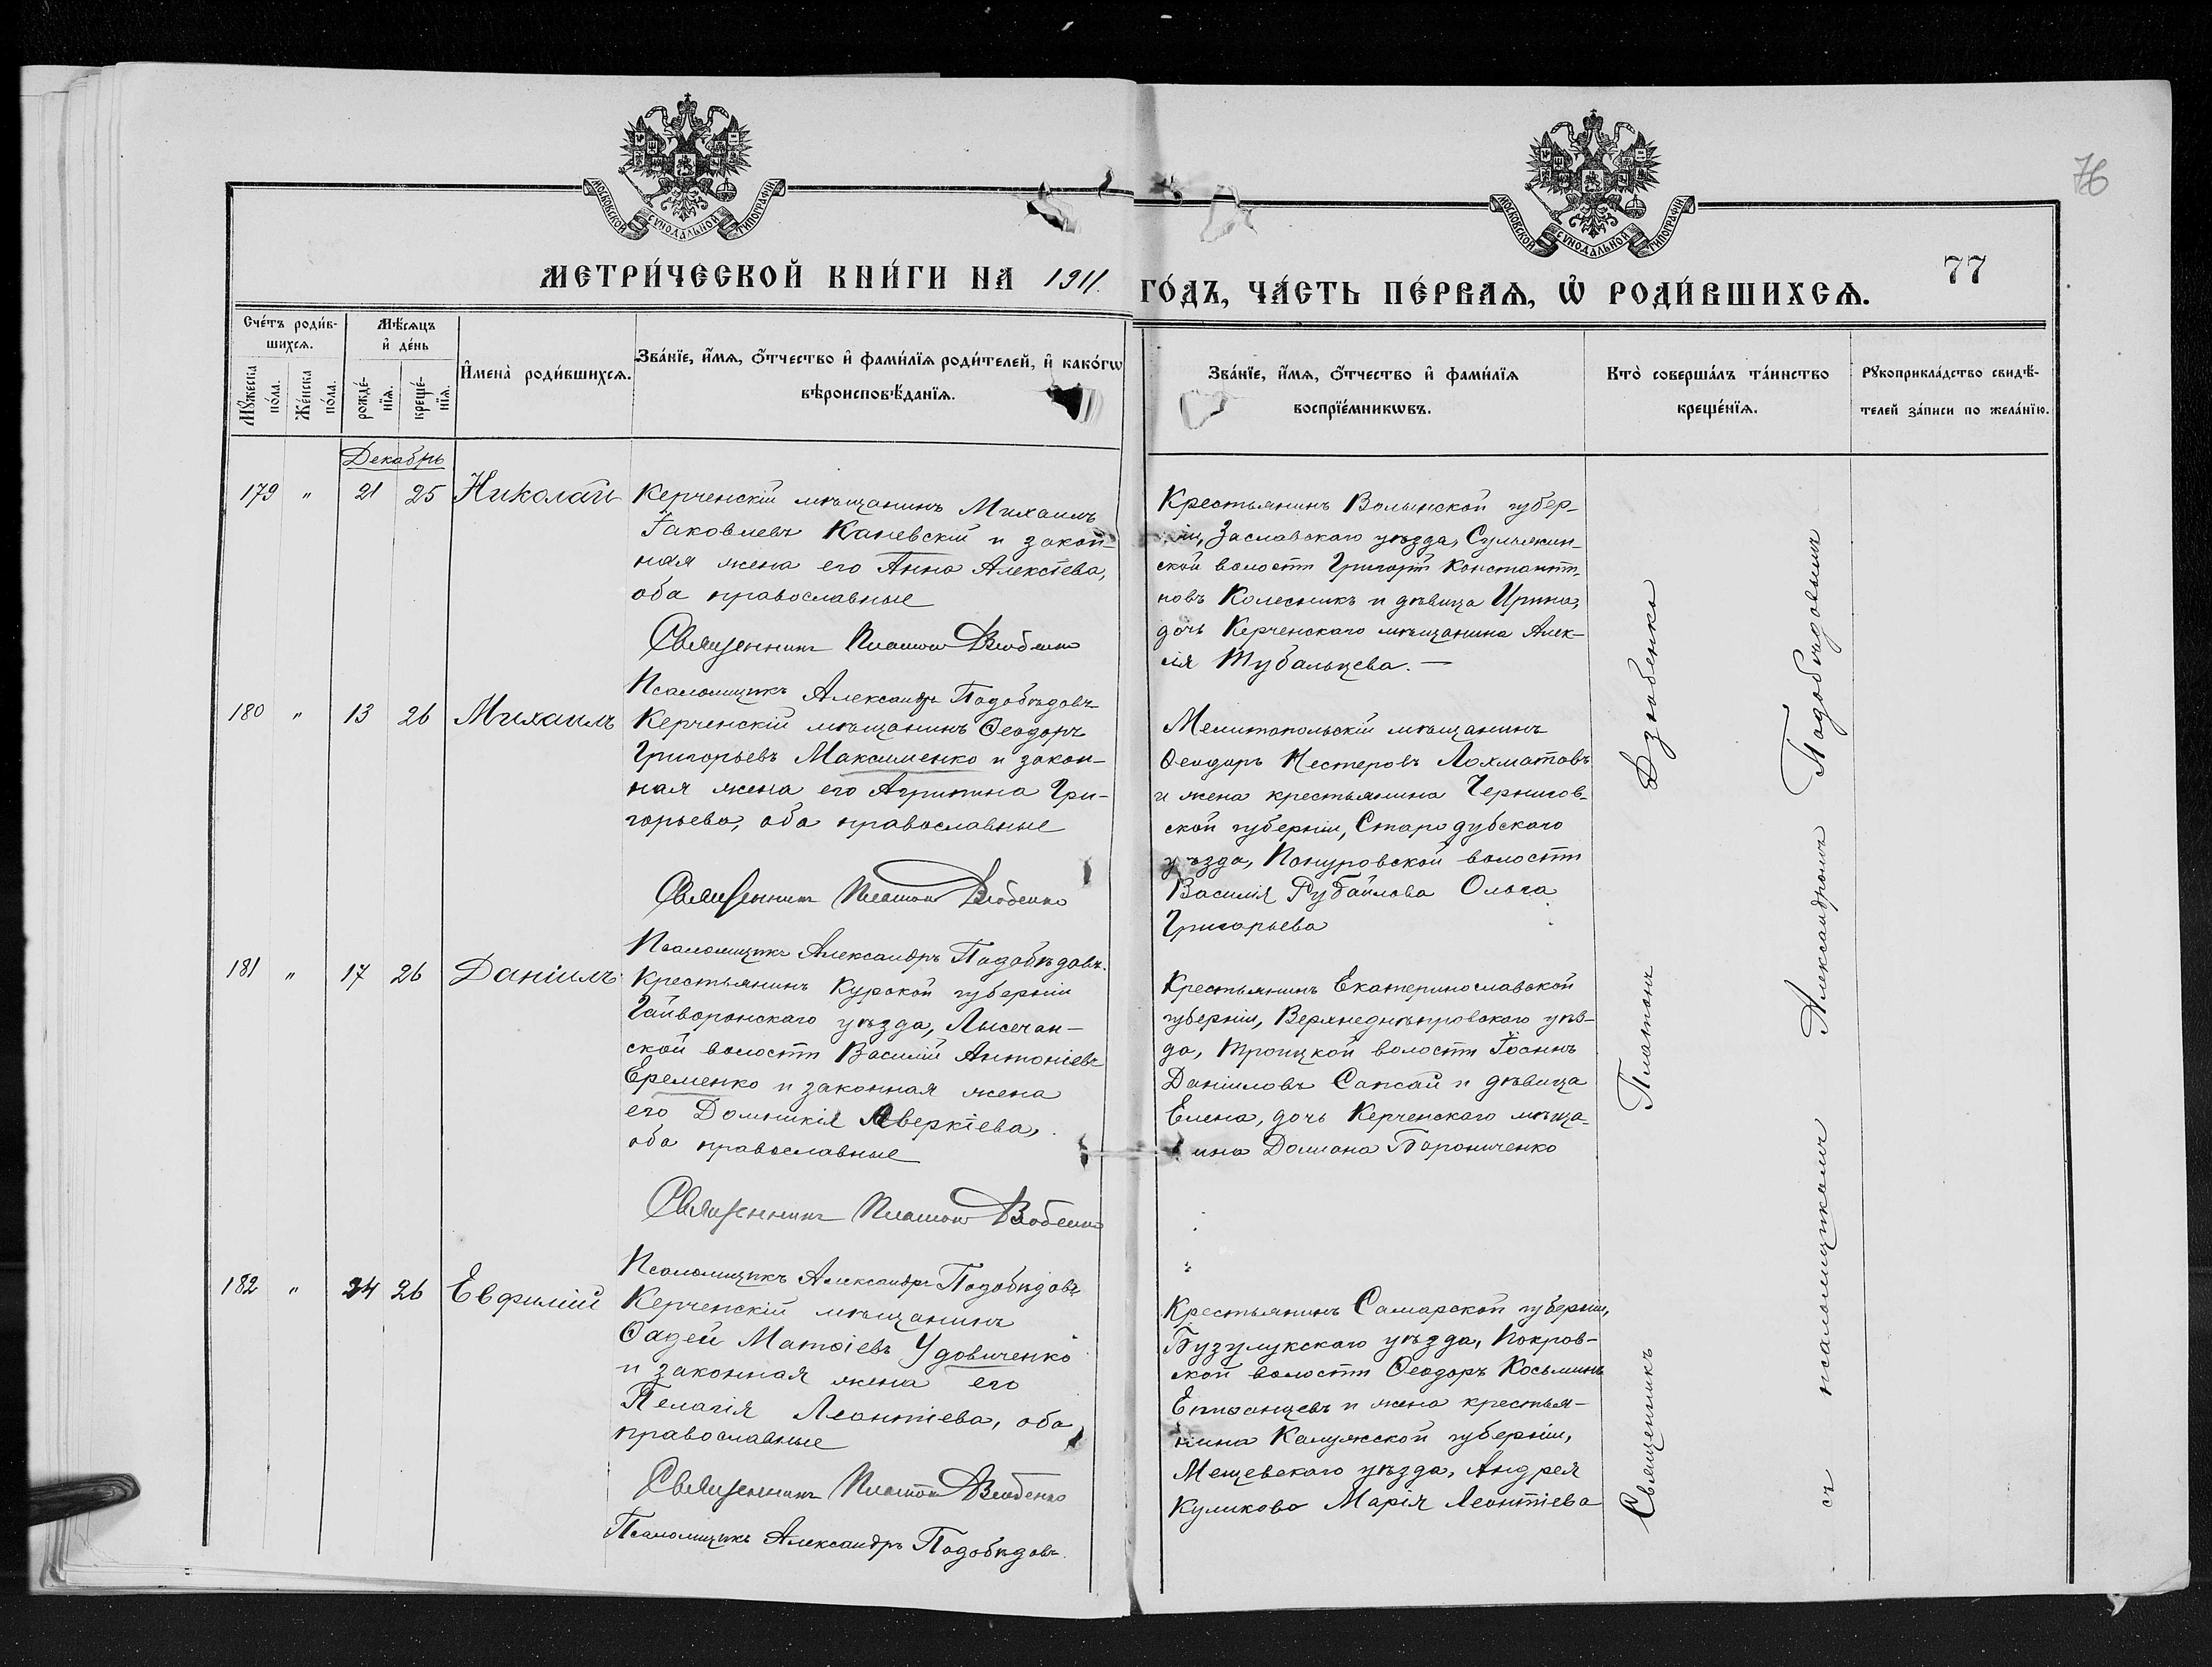 МОСКОВСКОЙ СѴНОДАЛЬНОЙ ТИПОГРАФІИ
МОСКОВСКОЙ СѴНОДАЛЬНОЙ ТИПОГРАФІИ
76
77
МЕТРИ́ЧЕСКОЙ КНИ́ГИ НА 1911. ГО́ДЪ, ЧА́СТЬ ПЕ́РВАѦ, Ѡ҆ РОДИ́ВШИХСѦ.
Сче́тъ роди́в-
шихсѧ.
Мꙋ́жеска по́ла.
Же́нска по́ла.
Мѣ́сѧцъ
и҆ де́нь
рожде́-
нїѧ.
креще́-
нїѧ.
И҆мена̀ роди́вшихсѧ.
Зва́нїе, и҆́мѧ, ѻ҆́тчество и҆ фами́лїѧ роди́телей, и҆ како́гѡ
вѣроисповѣ́данїѧ.
Зва́нїе, и҆́мѧ, ѻ҆́тчество и҆ фами́лїѧ
воспрїе́мникѡвъ.
Кто̀ соверша́лъ та́инство
креще́нїѧ.
Рꙋкоприкла́дство свидѣ́-
телей за́писи по жела́нїю.
Декабрь
179 " 21 25 Николай
Керченскій мѣщанинъ Михаилъ
Іаковлевъ Каневскій и закон-
ная жена его Анна Алексѣева,
оба православные
Священникъ Платонъ Дзюбенко
Псаломщикъ Александръ Подобѣдовъ
Крестьянинъ Волынской губер-
ніи, Заславскаго уѣзда,
ской волости Григорій Константи-
новъ Колесникъ и дѣвица Ирина,
дочь Керченскаго мѣщанина Алек-
сія Тубальцева. —
180 " 13 26 Михаилъ
Керченскій мѣщанинъ Ѳеодоръ
Григорьевъ Максименко и закон-
ная жена его Агрипина Гри-
горьева, оба православные
Священникъ Платонъ Дзюбенко
Псаломщикъ Александръ Подобѣдовъ.
Мелитопольскій мѣщанинъ
Ѳеодоръ Нестеровъ Лохматовъ
и жена крестьянина Чернигов-
ской губерніи, Стародубскаго
уѣзда, Понуровской волости
Василія Рубайлова Ольга
Григорьева
181 " 17 26 Даніилъ
Крестьянинъ Курской губерніи
Гайворонскаго уѣзда, Лисечан-
ской волости Василій Антоніевъ
Еременко и законная жена
его Домникія Аверкіева,
оба православные
Священникъ Платонъ Дзюбенко
Псаломщикъ Александръ Подобѣдовъ
Крестьянинъ Екатеринославской
губерніи, Верхнеднѣпровскаго уѣз-
да, Троицкой волости Іоаннъ
Даніиловъ Сапсай и дѣвица
Елена, дочь Керченскаго мѣща-
нина Домана Барониченко
182 " 24 26 Евфимій
Керченскій мѣщанинъ
Ѳадей Матѳіевъ Удовиченко
и законная жена его
Пелагія Леонтіева, оба
православные
Священникъ Платонъ Дзюбенко
Псаломщикъ Александръ Подобѣдовъ.
Крестьянинъ Самарской губерніи,
Бузулукскаго уѣзда, Покров-
ской волости Ѳеодоръ Косьминъ
Епифанцевъ и жена крестья-
нина Калужской губерніи,
Мещевскаго уѣзда, Андрея
Куликова Марія Леонтіева
Священникъ Платонъ Дзюбенко
съ псаломщикомъ Александромъ Подобѣдовымъ